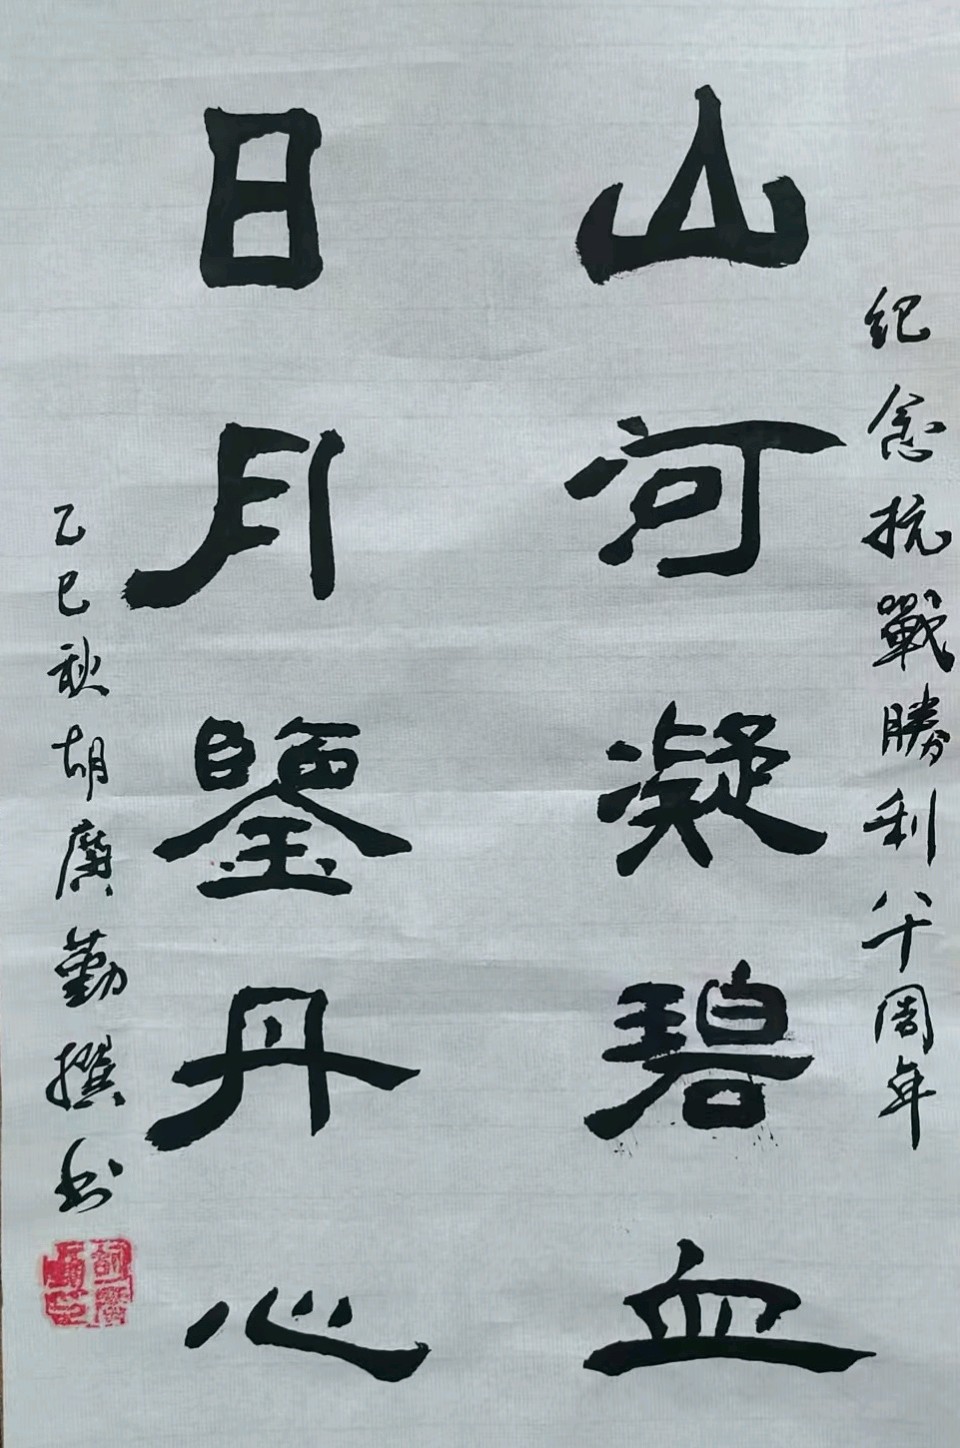 紀念抗戰勝利八十周年
山河凝碧血
日月鑒丹心
乙巳秋胡廣勤撰书